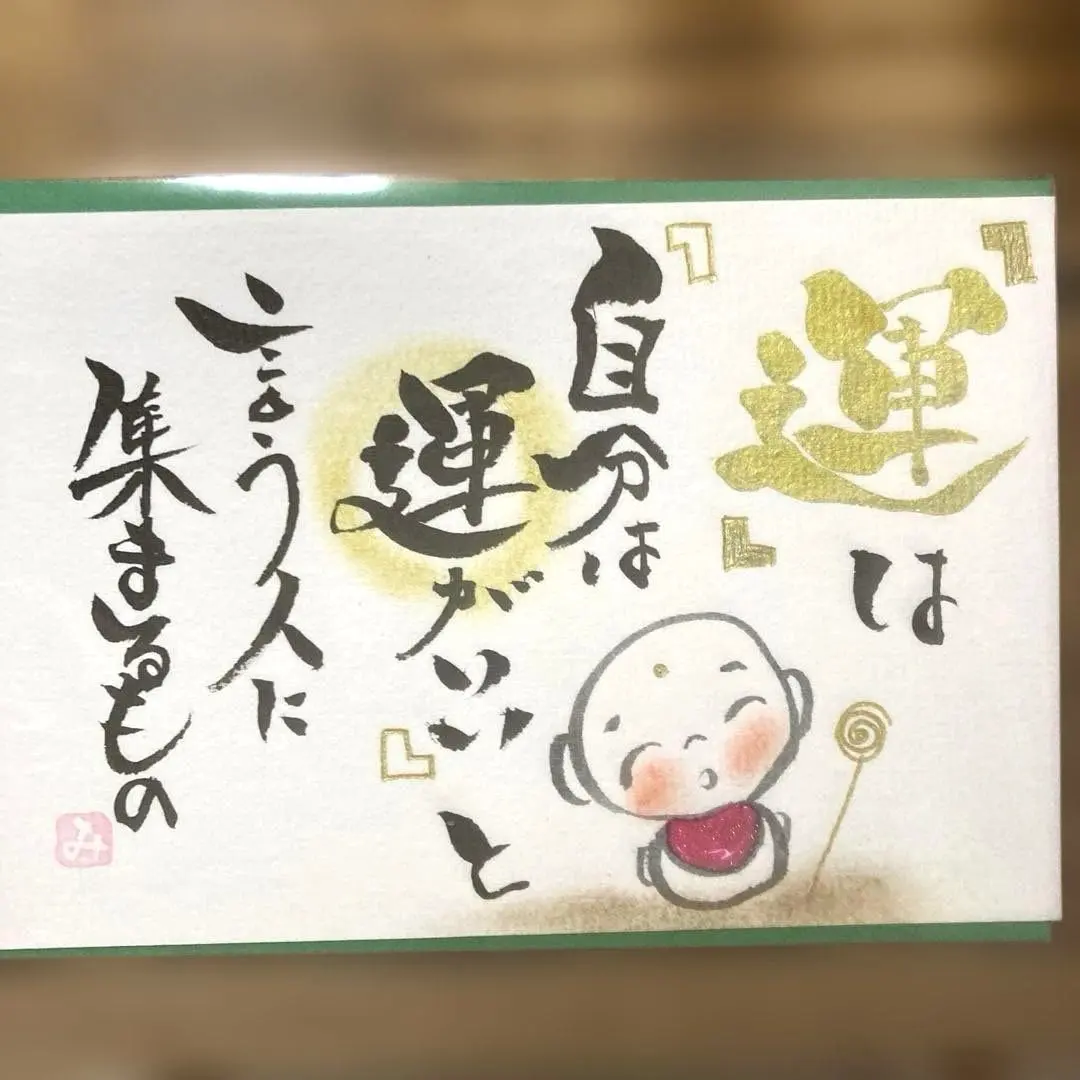 『運』は
『自分は
運がいい』と
言う人に
集まるもの
み